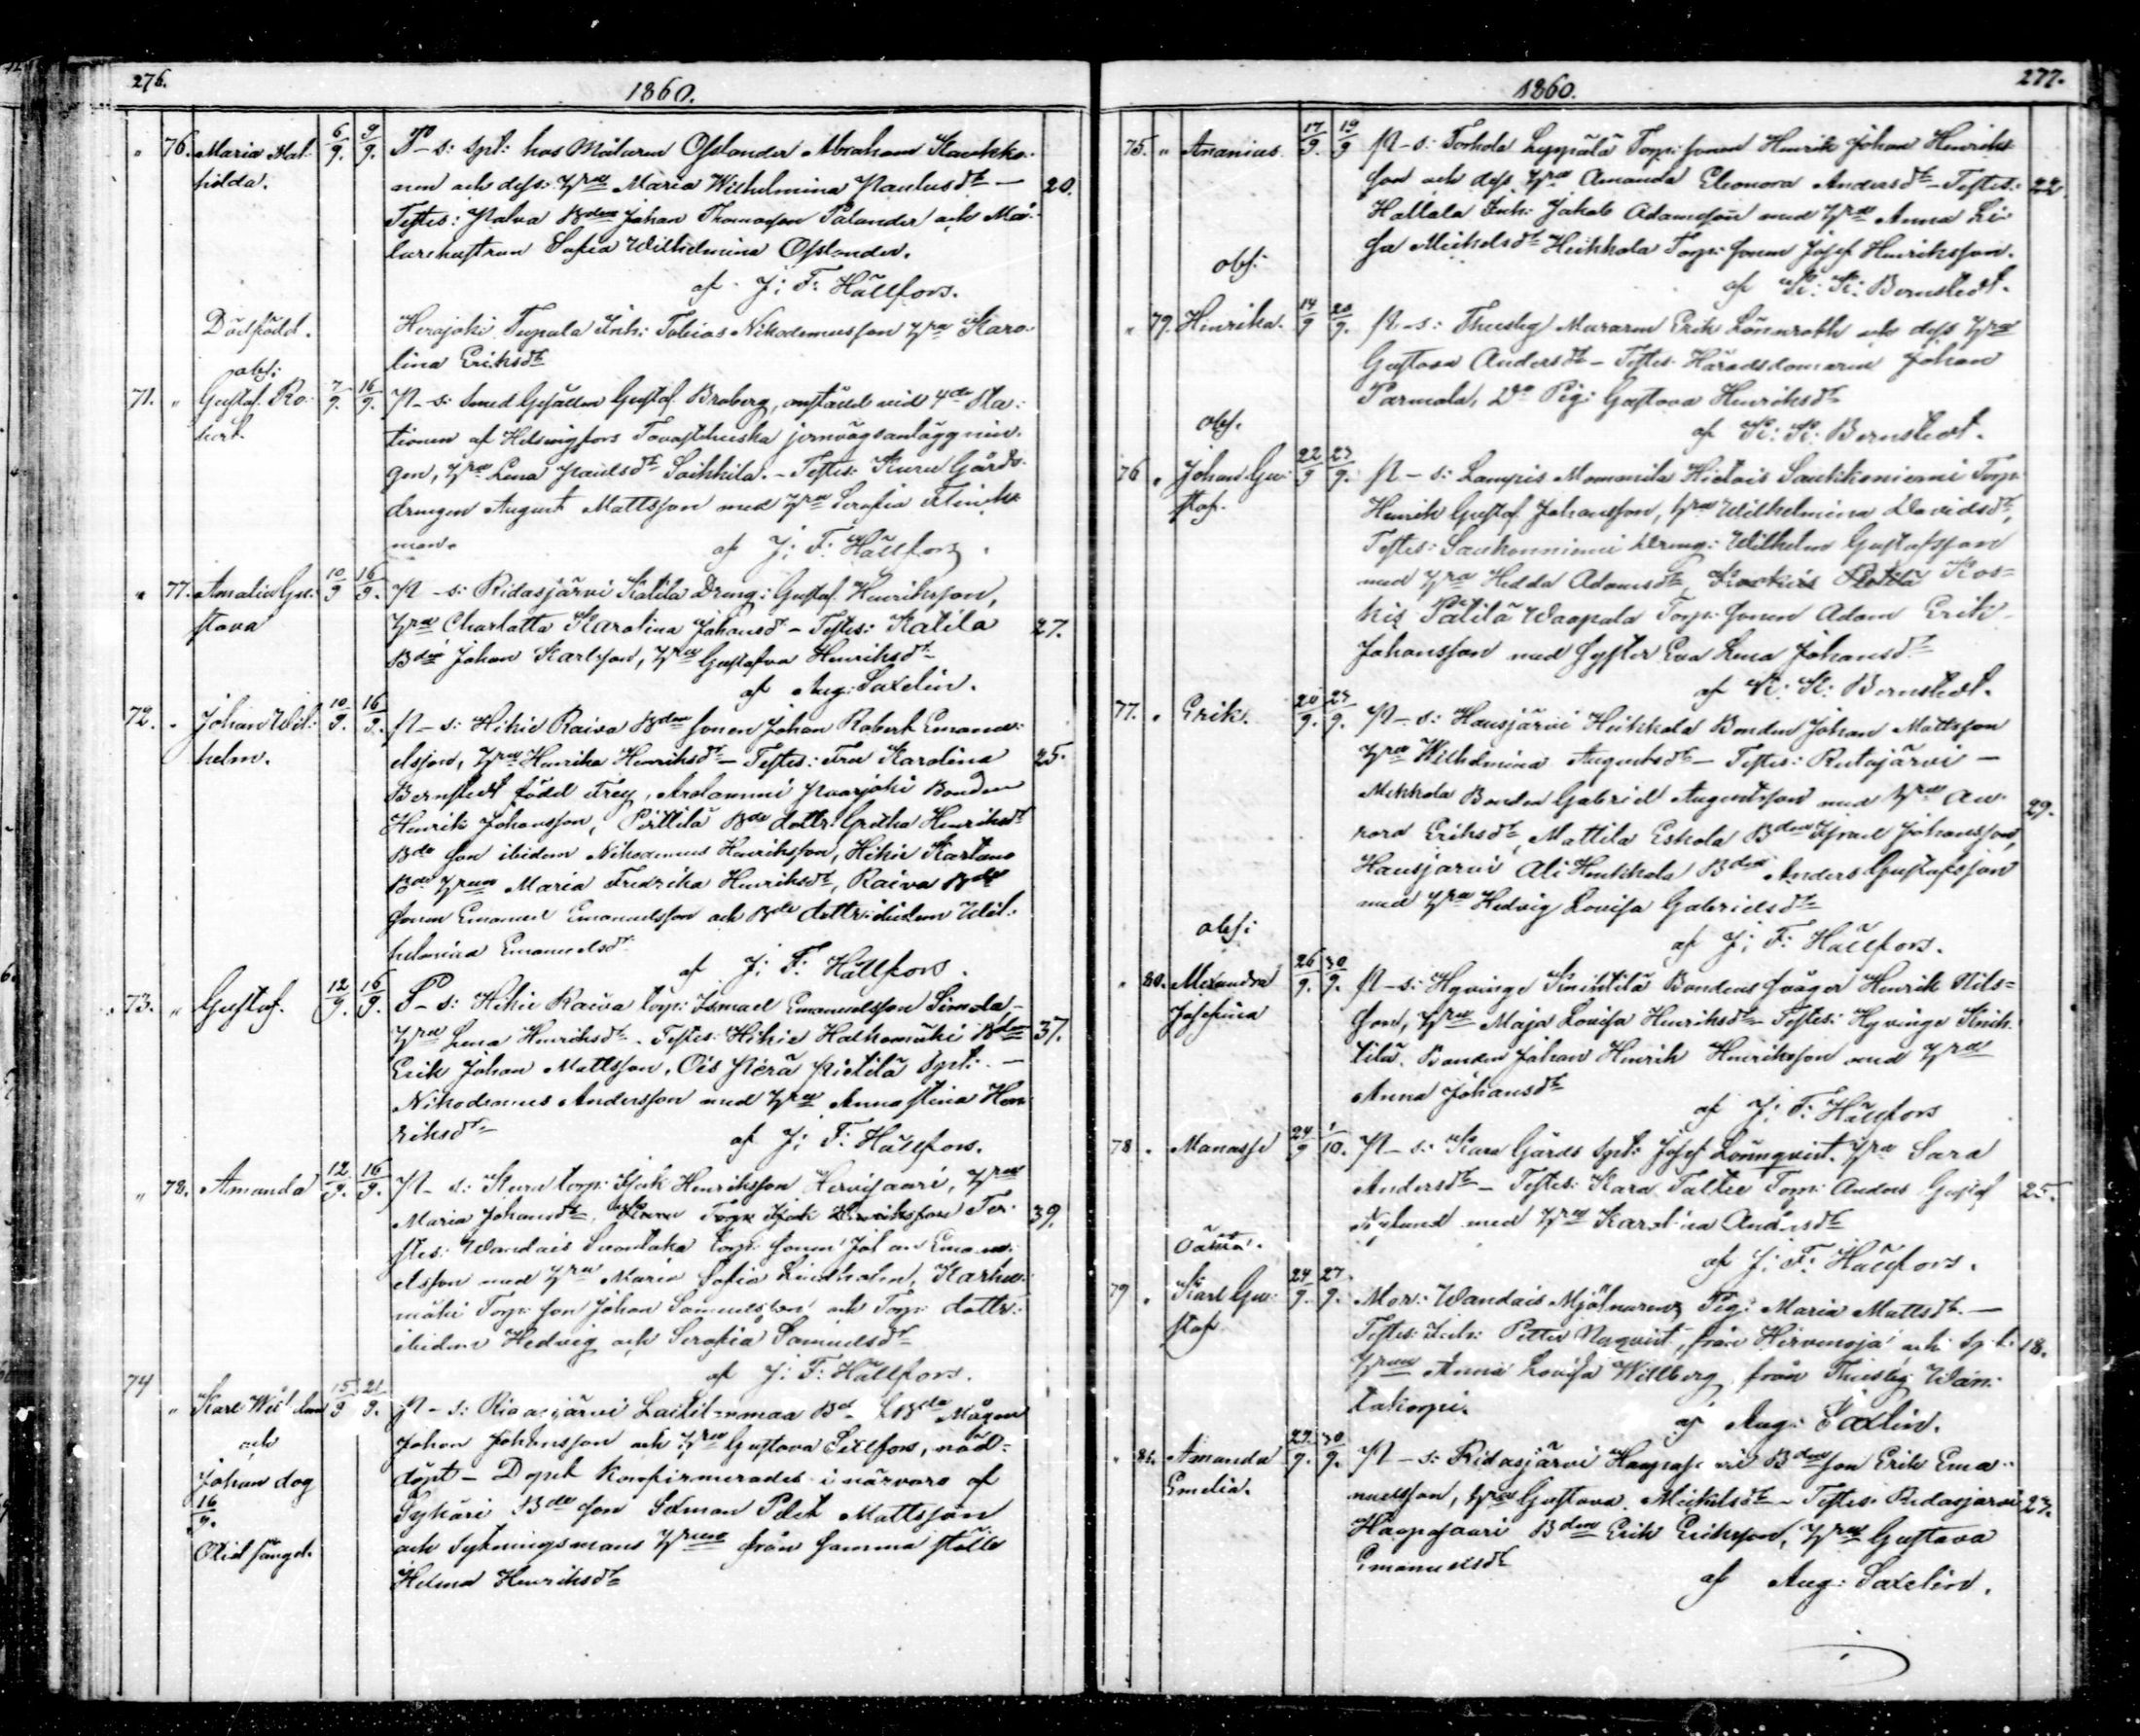 276.
1860.
" 76. Maria Mat- 6/9. 9/9. P–s: Spt: hos Målaren Osslander Abraham Kaukko-
hilda. nen och dess hru Maria Wilhelmina Paulusdr — 20.
Testes: Palva Bden Johan Thomasson Palander och Må-
larehustrun Sofia Wilhelmina Osslander.
af J: F: Hällfors.
Dödfödd. Herajoki Tupala Inh: Tobias Nikodemusson hru Karo-
lina Eriksdr
obs:
71. " Gustaf Ro- 7/9. 16/9. P–s: Smed Gesällen Gustaf Broberg, anställd vid 4de Sta-
bert. tionen af Helsingfors Tavastehuska jernvägsanläggnin-
gen, hru Lena Paulsdr Soikkila. – Testes: Kuru Gårds-
drengen August Mattsson med hru Serafia Flink-
man.
af J: F: Hällfors.
" 77. Amalia Gu- 10/9 16/9. P–s: Ridasjärvi Katila Dreng: Gustaf Henriksson,
stava hru Charlotta Karolina Johansdr – Testes: Katila 27.
Bden Johan Karlsson, hru Gustafva Henriksdr
af Aug: Saxelin.
72. " Johan Wil- 10/9. 16/9. P–s: Hikiä Raiva Bden sonen Johan Robert Emanu-
helm. elsson, hru Henrika Henriksdr – Testes: Fru Karolina 25.
Bernstedt född Frey, Arolammi Paarjoki Bonden
Henrik Johansson, Pirttilä Bde dottr: Gretha Henriksdr
Bde son ibidem Nikodemus Henriksson, Hikiä Kartano
Bde hrun Maria Fredrika Henriksdr, Raiva Bde
sonen Emanuel Emanuelsson och Bde dottr: ibidem Wil-
helmina Emanuelsdr
af J: F: Hällfors.
73. " Gustaf. 12/9. 16/9. P–s: Hikiä Raiva torp: Ismael Emanuelsson Simola –
hru Lena Henriksdr. Testes: Hikiä Halkomäki Bden 37.
Erik Johan Mattsson, Ois Perä Pietilä Spt: —
Nikodemus Andersson med hru Anna Stina Hen-
riksdr
af J: F: Hällfors.
" 78. Amanda 12/9. 16/9. P–s: Kuru torp: Isak Henriksson Hervisaari, hru
Maria Johansdr, Tes- 39.
tes: Wandais Suontaka torp: sonen Johan Emanu-
elsson med hru Maria Sofia Lindholm, Karhu-
mäki Torp: son Johan Samuelsson och Torp: dottr:
ibidem Hedvig och Serafia Samuelsdr
af J: F: Hällfors.
74 " Karl Wilhelm 15/9 21/9. P–s: Ridasjärvi Bde Mågen
och Johan Johansson och hru Gustava Sillfors, nöd-
Johan dog döpt – Dopet konfirmerades i närvaro af
16/9. Sykäri Bde son Salmon Petet Mattsson
och Sytningsmans hrun från samma ställe
Helena Henriksdr
277.
1860.
75. " Ananias 17/9. 19/9 P–s: Torhola Leppälä Torp: sonen Henrik Johan Henriks-
son och dess hru Amanda Eleonora Andersdr – Testes: 22.
Hallala Inh: Jakob Adamsson med hru Anna Li-
sa Mickelsdr Heikkola Torp: sonen Josef Henriksson.
obs: af K: K: Bernstedt.
" 79. Henrika. 14/9 20/9. P–s: Thusby Muraren Erik Lönnroth och dess hru
Gustava Andersdr – Testes: Häradsdomaren Johan
Parmala, Do Pig: Gustava Henriksdr
obs. af K: K: Bernstedt.
76 " Johan Gu- 22/9 23/9. P–s: Lampis Mommila Hietois Saukkoniemi Torp:
staf. Henrik Gustaf Johansson, hru Wilhelmina Davidsdr,
Testes: Saukonniemi Dreng: Wilhelm Gustafsson
med hru Hedda Adamsdr, Kos-
kis Pätilä Waapala Torp: sonen Adam Erik
Johansson med syster Eva Lena Johansdr
af K: K: Bernstedt.
77. " Erik. 20/9. 23/9. P–s: Hausjärvi Heikkola Bonden Johan Mattsson
hru Wilhelmina Augustsdr – Testes: Rutajärvi –
Mikkola Bonden Gabriel Augustsson med hru Au- 29.
rora Eriksdr, Mattila Eskola Bden Israel Johansson,
Hausjärvi Ali Heikkola Bden Anders Gustafsson
med hru Hedvig Lovisa Gabrielsdr
obs: af J: F: Hällfors.
" 80. Alexandra 26/9. 30/9. P–s: Hyvinge Knihtilä Bondens svåger Henrik Nils-
Josefina son, hru Maja Lovisa Henriksdr – Testes: Hyvinge Knih-
tilä Bonden Johan Henrik Henriksson med hru
Anna Johansdr
af J: F: Hällfors
78 " Manasse 24/9 1/10. P–s: Kara Gårds Spt: Josef Lönnqvist, hru Sara
Andersdr – Testes: Kara Taltie Torp: Anders Gustaf 25.
Nylund med hru Karolina Andersdr
Oäkta. af J: F: Hällfors.
79 " Karl Gu- 24/9. 27/9. Mor: Wandais Mjölnarens Pig: Maria Mattsdr. —
staf Testes: Inh: Petter Nyqvist, från Hirvenoja och Spt: 18.
hrun Anna Lovisa Willberg från Thusby Wan-
takorpi.
af Aug: Saxelin.
" 81. Amanda 29/9. 30/9. P–s: Ridasjärvi Haapasaari Bden son Erik Ema-
Emelia. nuelsson, hru Gustava Mickelsdr – Testes: Ridasjärvi 23.
Haapasaari Bden Erik Eriksson, hru Gustava
Emanuelsdr
af Aug: Saxelin.